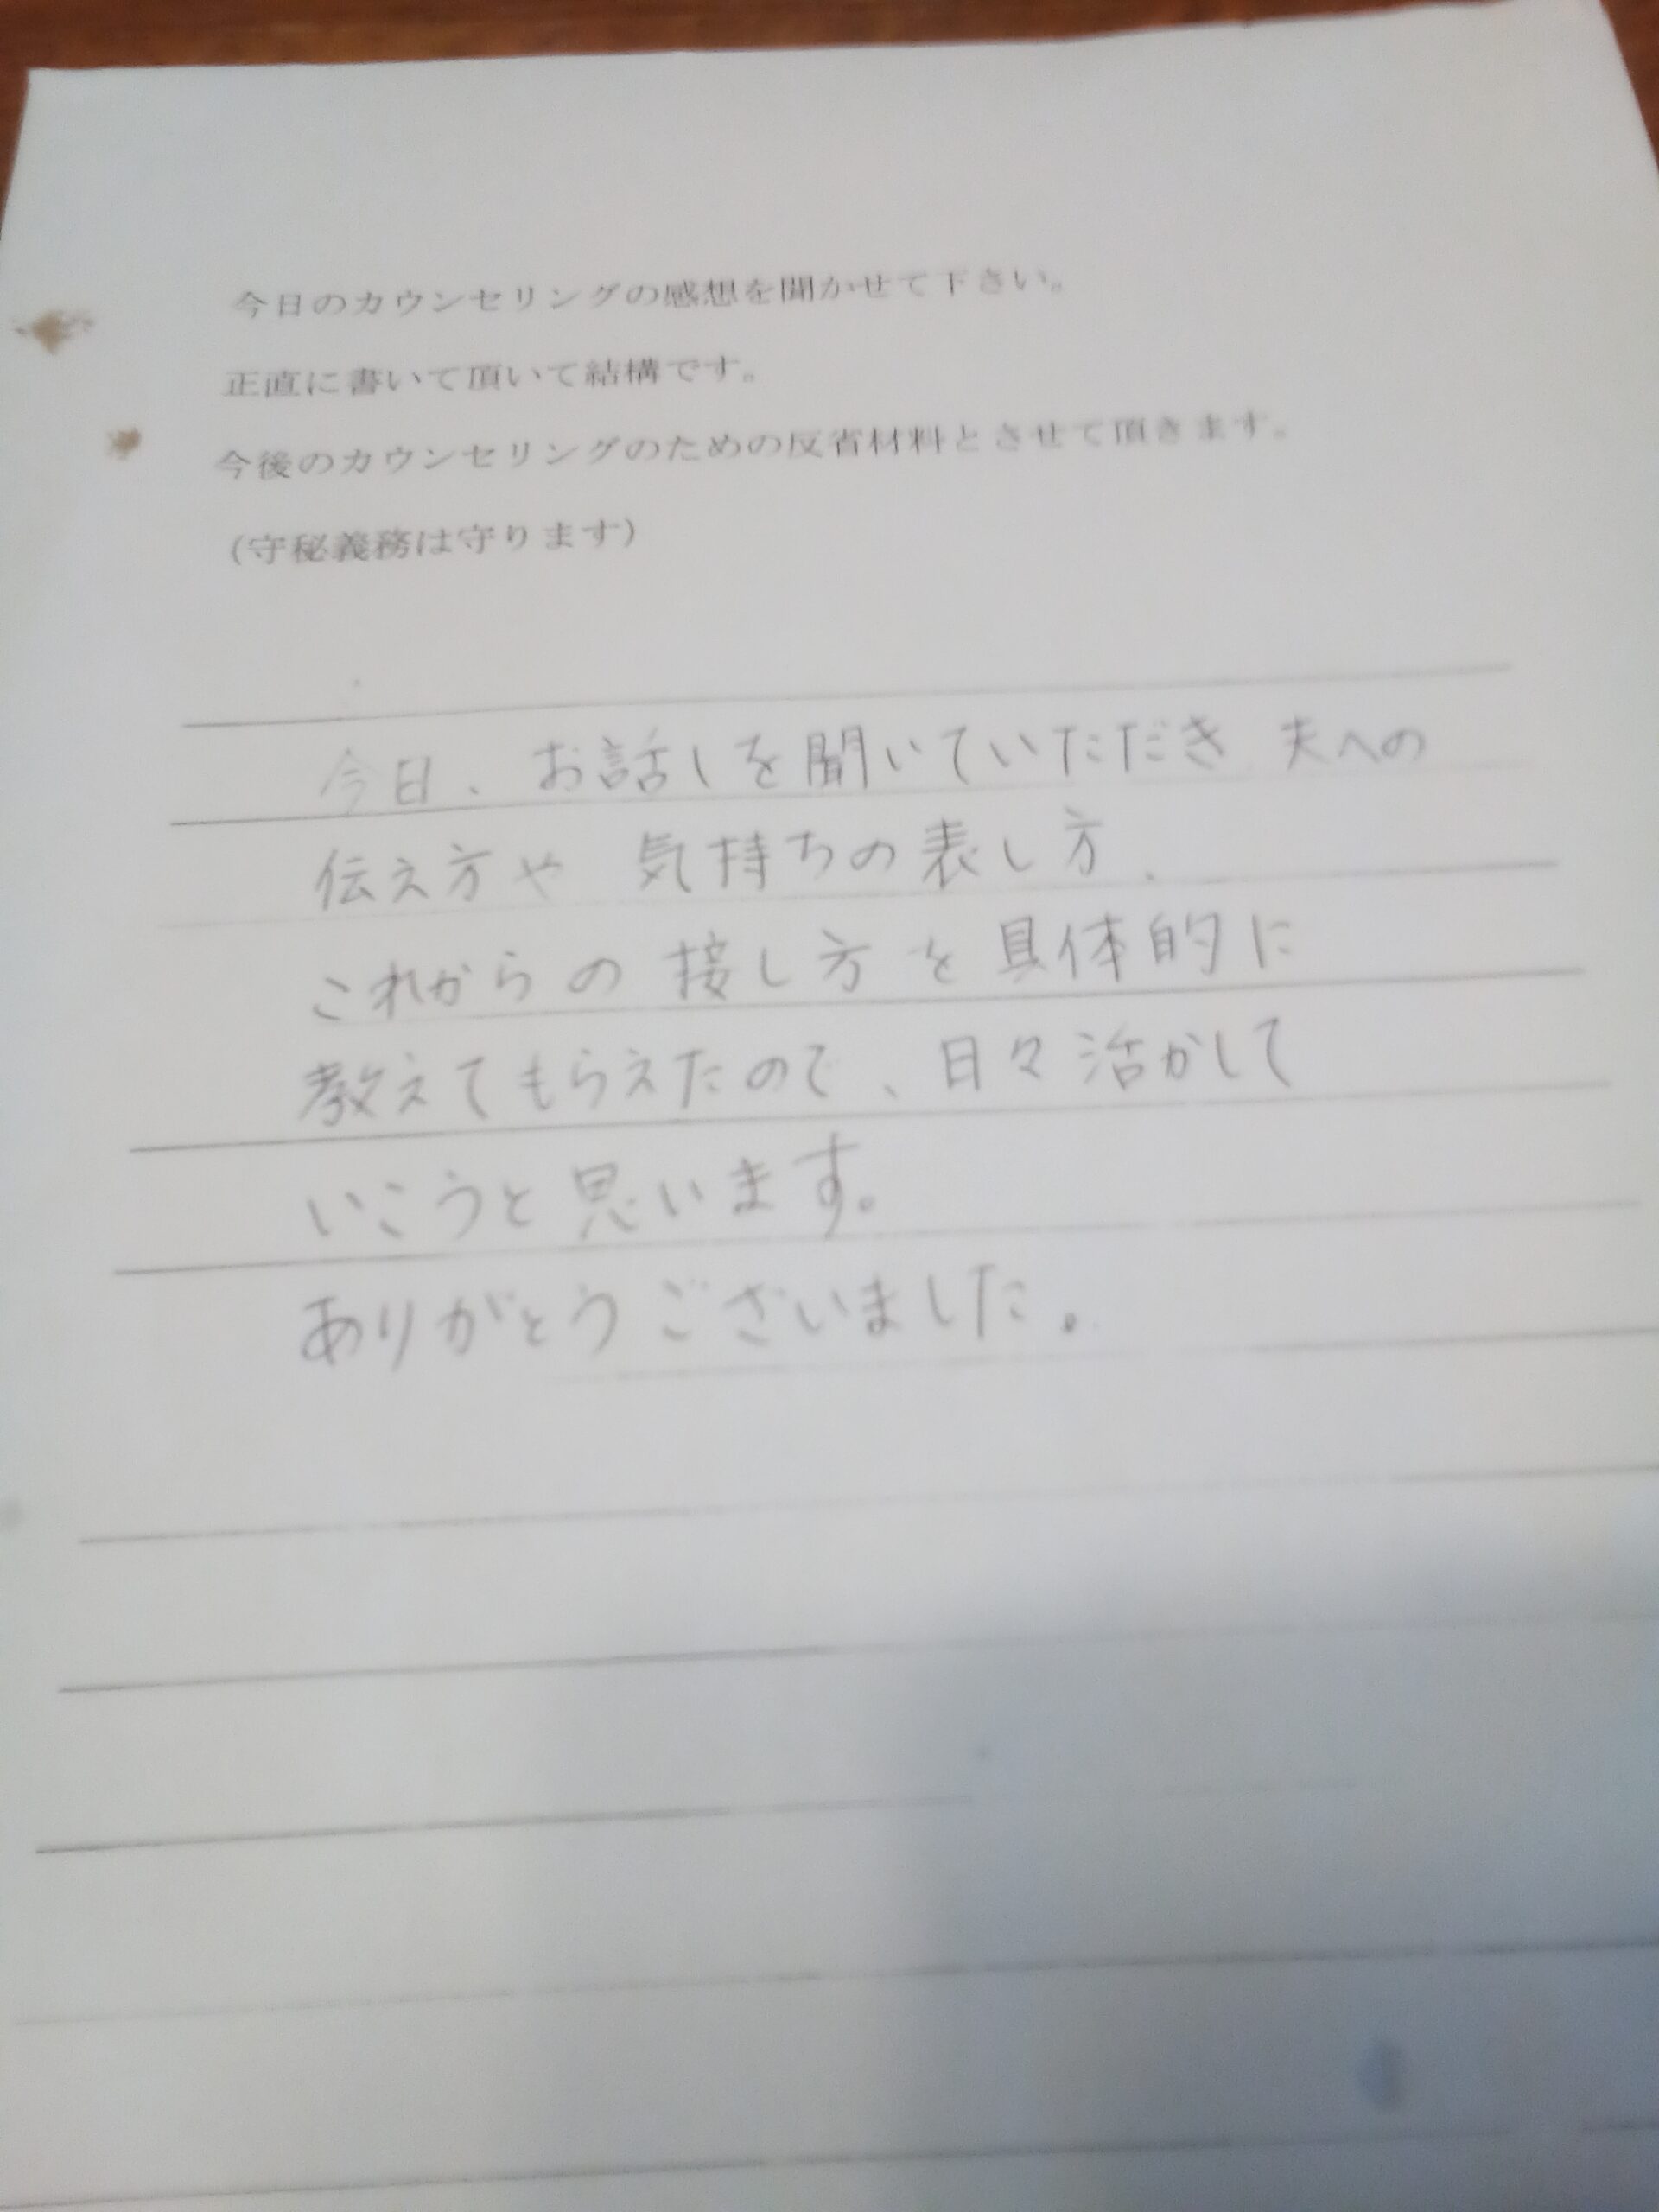 今日のカウンセリングの感想を聞かせて下さい。
正直に書いて頂いて結構です。
今後のカウンセリングのための反省材料とさせて頂きます。
(守秘義務は守ります)
今日、お話しを聞いていただだき 夫への
伝え方や 気持ちの表し方、
これからの接し方を具体的に
教えてもらえたので、日々活かして
いこうと思います。
ありがとうございました。